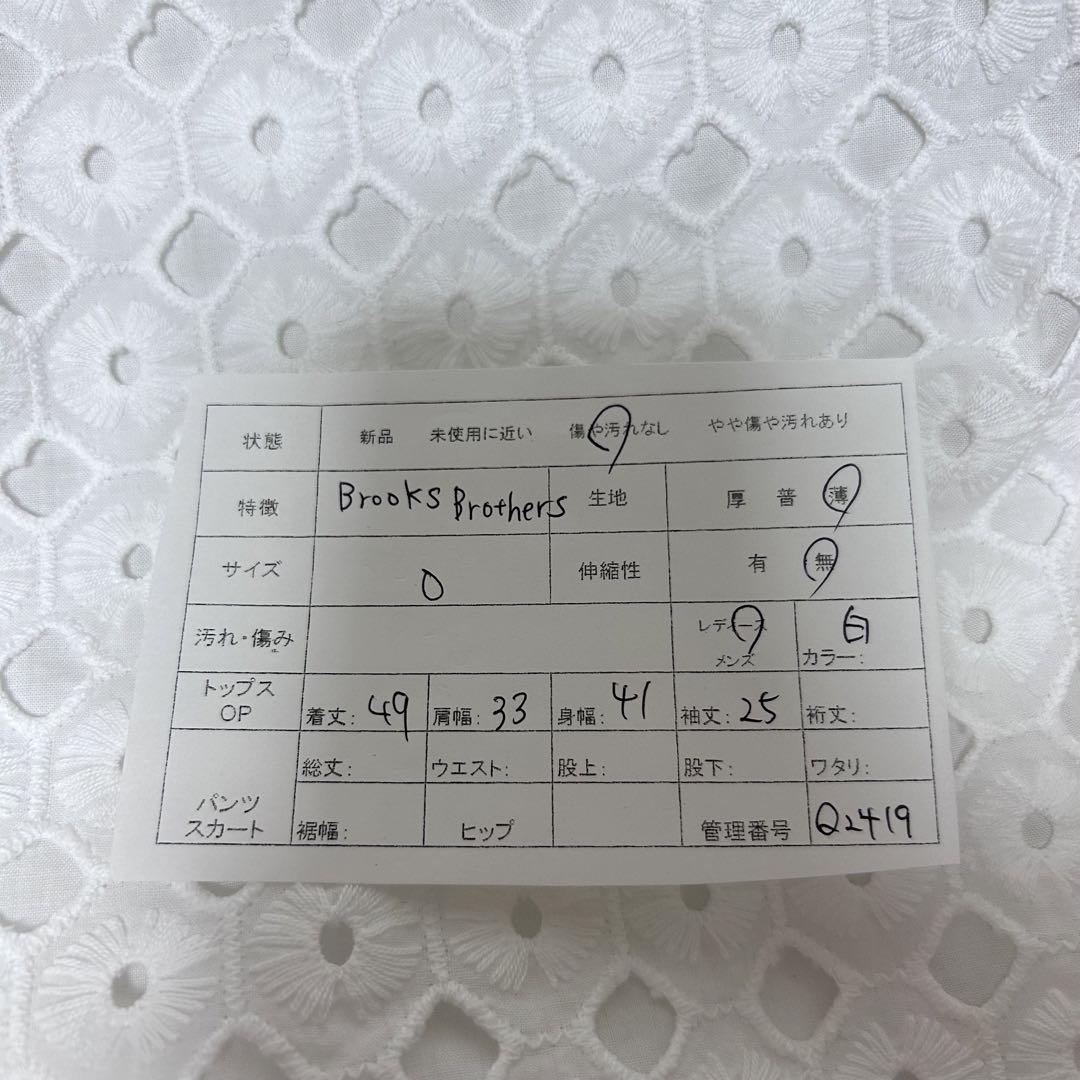 状態 新品 未使用に近い 傷や汚れなし やや傷や汚れあり
特徴 Brooks Brothers 生地 厚 普 薄
サイズ 0 伸縮性 有 無
汚れ・傷み レディース メンズ カラー: 白
トップス OP 着丈: 49 肩幅: 33 身幅: 41 袖丈: 25 裄丈:
総丈: ウエスト: 股上: 股下: ワタリ:
パンツ スカート 裾幅: ヒップ 管理番号 Q2419